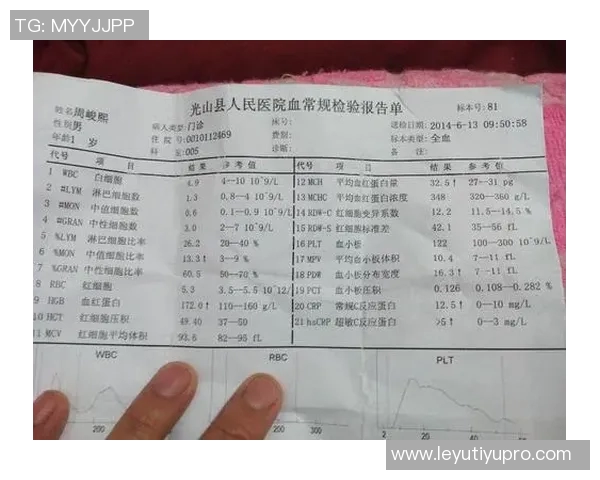 TG: MYYJJPP
光山县人民医院血常规检验报告单
标本号: 81
姓名周峻熙
性别男
年龄1 岁
病人类型: 门诊
住院号: 0010112469
科 室: 005
床号:
费别:
诊断:
送检日期: 2014-6-13 09:50:58
标本类型: 全血
备 注:
代号 项 目 结 果 参 考 值 代号 项 目 结 果 参 考 值
1 WBC 白细胞 4.9 4—10 10^9/L 12 MCH 平均血红蛋白量 32.5↑ 27—31 pg
2 #LYM 淋巴细胞数 1.3 0.8—4 10^9/L 13 MCHC 平均血红蛋白浓度 348 320—360 g/L
3 #MON 中值细胞数 0.6 0.1—0.9 10^9/L 14 RDW-C 红细胞变异系数 12.2 11.5—14.5 %
4 #GRAN 中性细胞数 3.0 2—7 10^9/L 15 RDW-S 红细胞标准差 42.1 35—56 fL
5 %LYM 淋巴细胞比率 26.2 20—40 % 16 PLT 血小板 122 100—300 10^9/L
6 %MON 中值细胞比率 13.3↑ 3—9 % 17 MPV 平均血小板体积 10.4 7—11 fL
7 %GRAN 中性细胞比率 60.5 50—70 % 18 PDW 血小板分布宽度 16.3↑ 7—11 fL
8 RBC 红细胞 5.3 3.5—5.5 10^12/ 19 PCT 血小板压积 0.126 0.108—0.282 %
9 HGB 血红蛋白 172.0↑ 110—160 g/L 20 CRP 常规C反应蛋白 12.5↑ 0—10 mg/L
10 HCT 红细胞压积 49.40 37—50 21 hsCRP 超敏C反应蛋白 >5↑ 0—3 mg/L
11 MCV 红细胞平均体积 93.6 82—95 fL
WBC RBC PLT
200 200 300 2 20 40
www.leyutiyupro.com